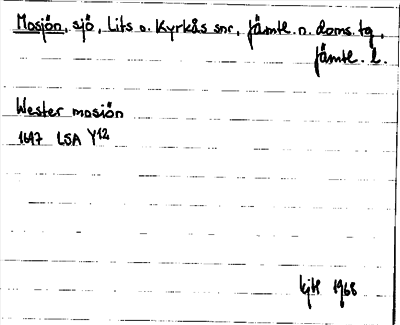 Mosjön, sjö, Lits o. Kyrkås snr, Jämtl. n. doms. tg,
Jämtl. l.
Wester mosiön
1647 LSA Y12
kjH 1968